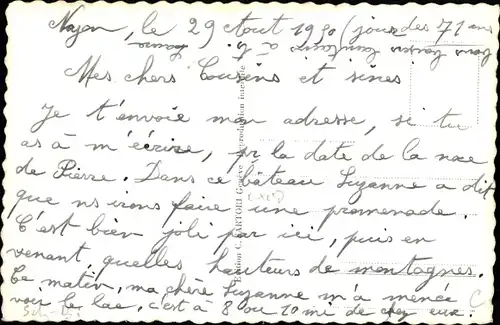 Nyon, le 29 Aout 1950 (jour des 71 ans
Mes chers Cousins et sines
Je t'envoie mon adresse, si tu
as à m'écrire, pr la date de la noce
de Pierre. Dans ce château Suzanne a dit
que ns irons faire une promenade.
C'est bien joli par ici, puis en
venant quelles hauteurs de montagnes.
Ce matin, ma chère Suzanne m'a menée
voir le lac, c'est à 8 ou 10 mi de chez eux.
Edition C. SARTORI Genève Reproduction interdite